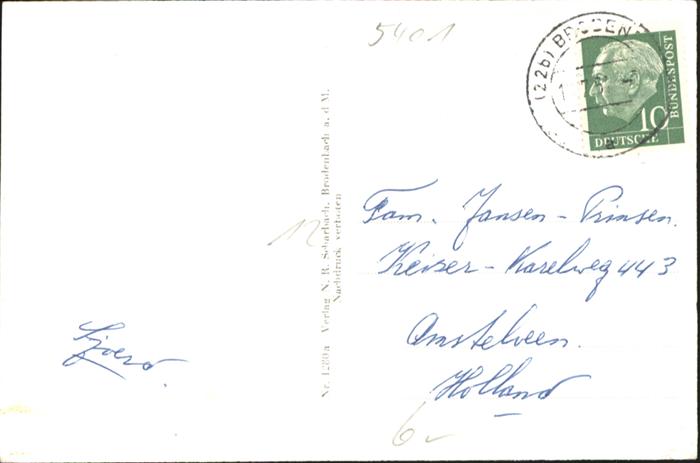 5401
(22b) BRODEN
10
DEUTSCHE
BUNDESPOST
a
Fam. Jansen - Prinsen.
Keizer - Karelweg 443
Amstelveen.
Holland
Sjoerd.
12
Nr. 1280a Verlag N. R. Scharbach, Brodenbach a. d M.
Nachdruck verboten
6-